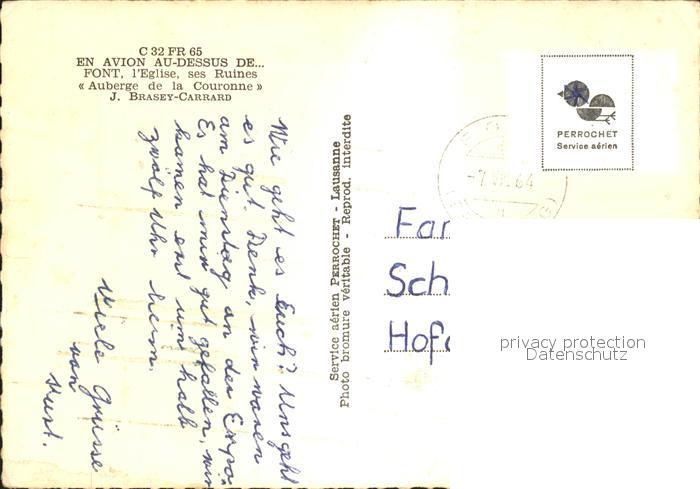 C 32 FR 65
EN AVION AU-DESSUS DE...
FONT, l'Eglise, ses Ruines
« Auberge de la Couronne »
J. BRASEY-CARRARD
Wie geht es Euch? Uns geht
es gut. Denk, wir waren
am Dienstag an der Expo.
Es hat mir gut gefallen, wir
kamen erst um halb
zwölf Uhr heim.
Viele Grüsse
von
Kurt.
Service aérien PERROCHET - Lausanne
Photo bromure véritable - Reprod. interdite
PERROCHET
Service aérien
-7.VII.64
Fam
Sch
Hofa
privacy protection
Datenschutz